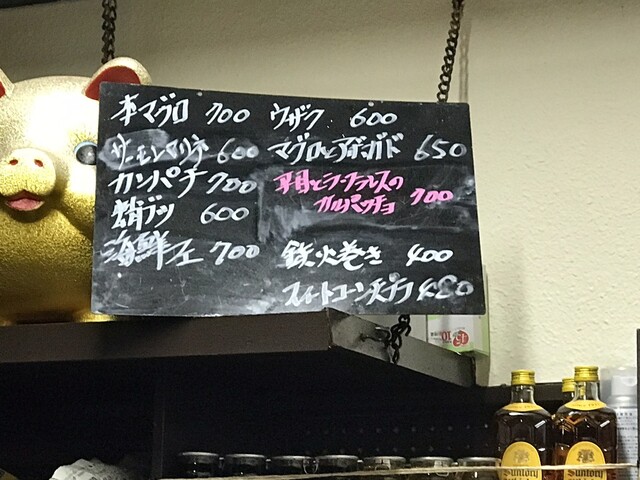 本マグロ 700
サーモンマリネ 600
カンパチ 700
蛸ブツ 600
海鮮ユッケ 700
ウザク 600
マグロとアボカド 650
平目とシークヮーサーの
カルパッチョ 700
鉄火巻き 400
スイートコーン天プラ 480
Suntory
Suntory